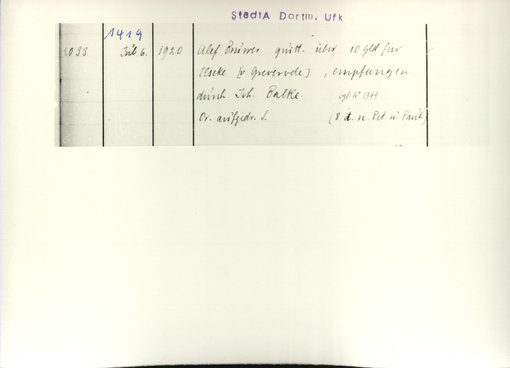 StadtA Dortm. Urk
1419
2033 Jul. 6. 1920 Alef Brüwer quitt. über 10 gld für
Elseke (v Greverode), empfangen
durch Joh. Balke. vgl. N° 1744
Or. aufgedr. S. (8. d. n. Pet u. Paul)